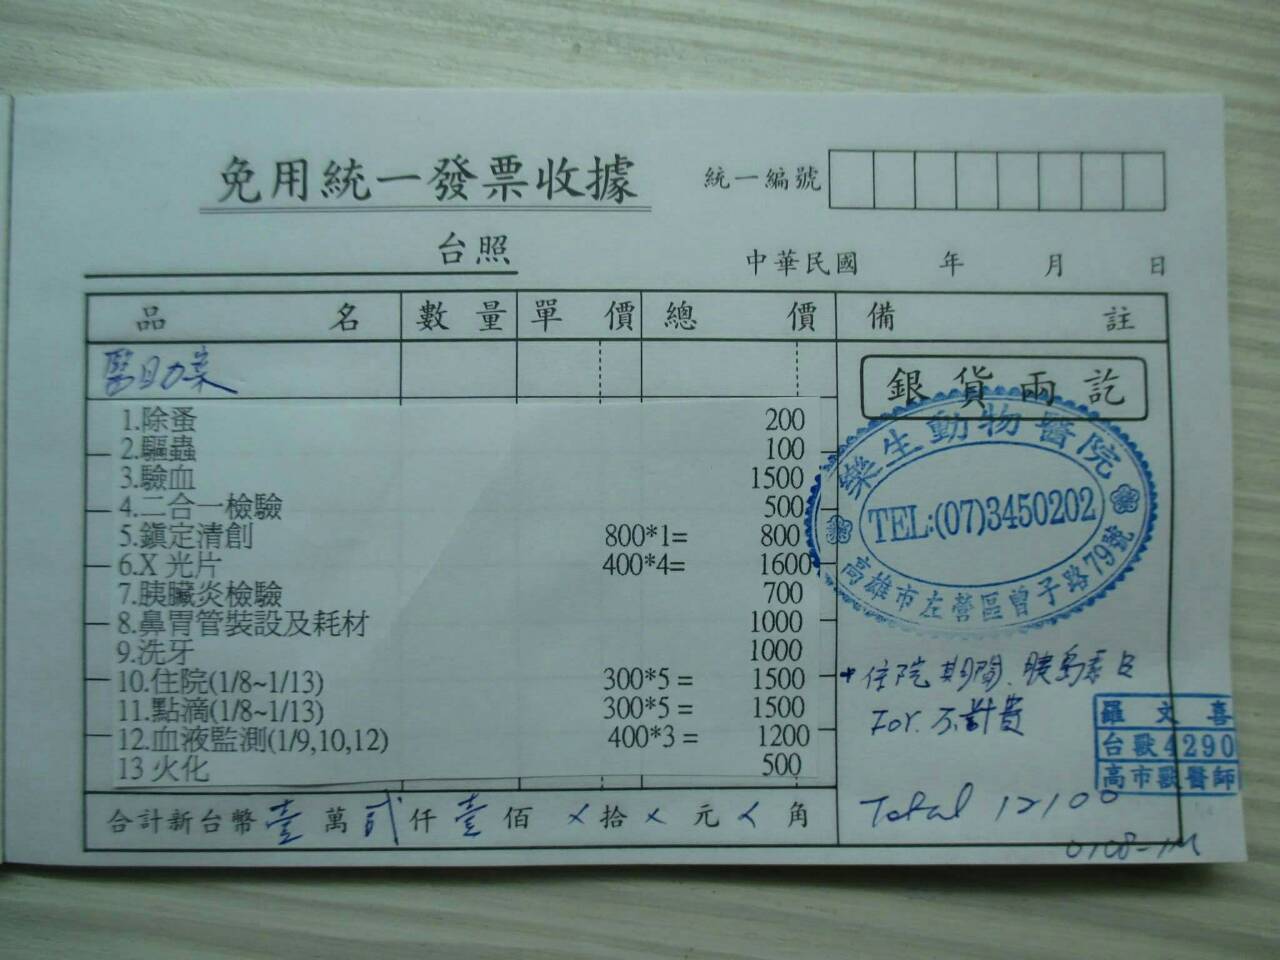 免用統一發票收據
統一編號
台照
中華民國 年 月 日
品名 數量 單價 總價 備註
醫助案
銀貨兩訖
1.除蚤 200
2.驅蟲 100
3.驗血 1500
4.二合一檢驗 500
5.鎮定清創 800*1= 800
6.X 光片 400*4= 1600
7.胰臟炎檢驗 700
8.鼻胃管裝設及耗材 1000
9.洗牙 1000
10.住院(1/8~1/13) 300*5 = 1500
11.點滴(1/8~1/13) 300*5 = 1500
12.血液監測(1/9,10,12) 400*3 = 1200
13 火化 500
樂生動物醫院
TEL:(07)3450202
高雄市左營區曾子路79號
住院期間、胰島素
不計費
羅文喜
台獸4290
高市獸醫師
Total 12100
合計新台幣壹萬貳仟壹佰 拾 元 角